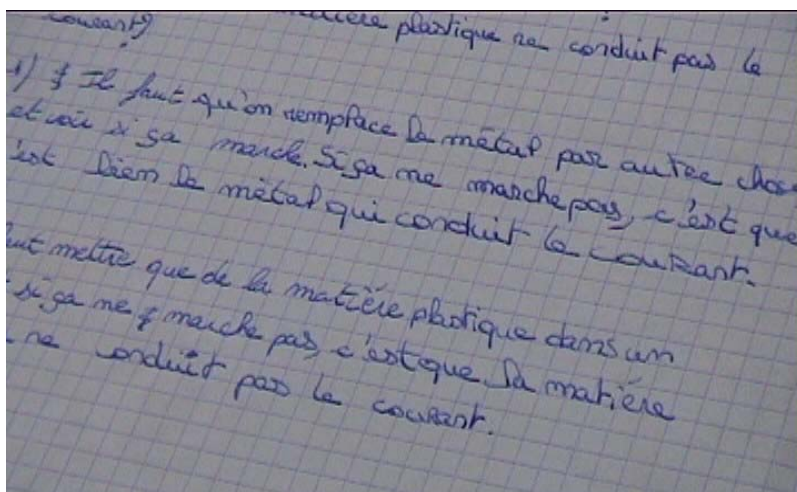 courant)
matière plastique ne conduit pas le
1) Il faut qu'on remplace le métal par autre chose
et voir si ça marche. Si ça ne marche pas, c'est que
c'est bien le métal qui conduit le courant.
faut mettre que de la matière plastique dans un
si ça ne marche pas, c'est que la matière
ne conduit pas le courant.